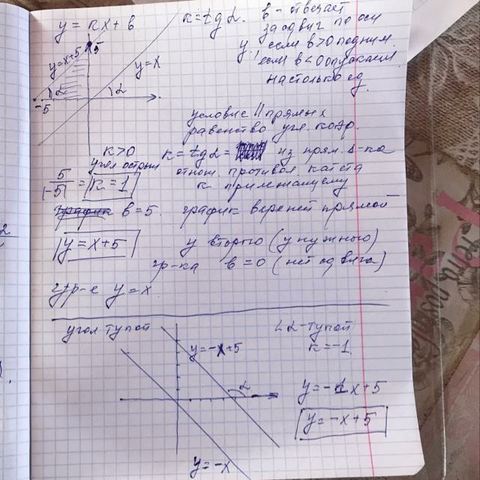 y = kx + b
k = tg α.
b - отвечает
за сдвиг по оси
y, если b>0 подним.
если b<0 опускаем
настолько ед.
5
y=x+5
y=x
α
α
-5
условие || прямых
равенство угл. коэф.
k>0
угол острый
k = tg α =
из прям. Δ-ка
5/|-5| = k=1
отнош. противол. катета
к прилежащему
b=5. график верхней прямой
y=x+5
у второго (у нужного)
гр-ка b=0 (нет сдвига)
y=x
угол тупой
y=-x+5
∠α-тупой
k=-1
α
y=-1x+5
y=-x+5
y=-x